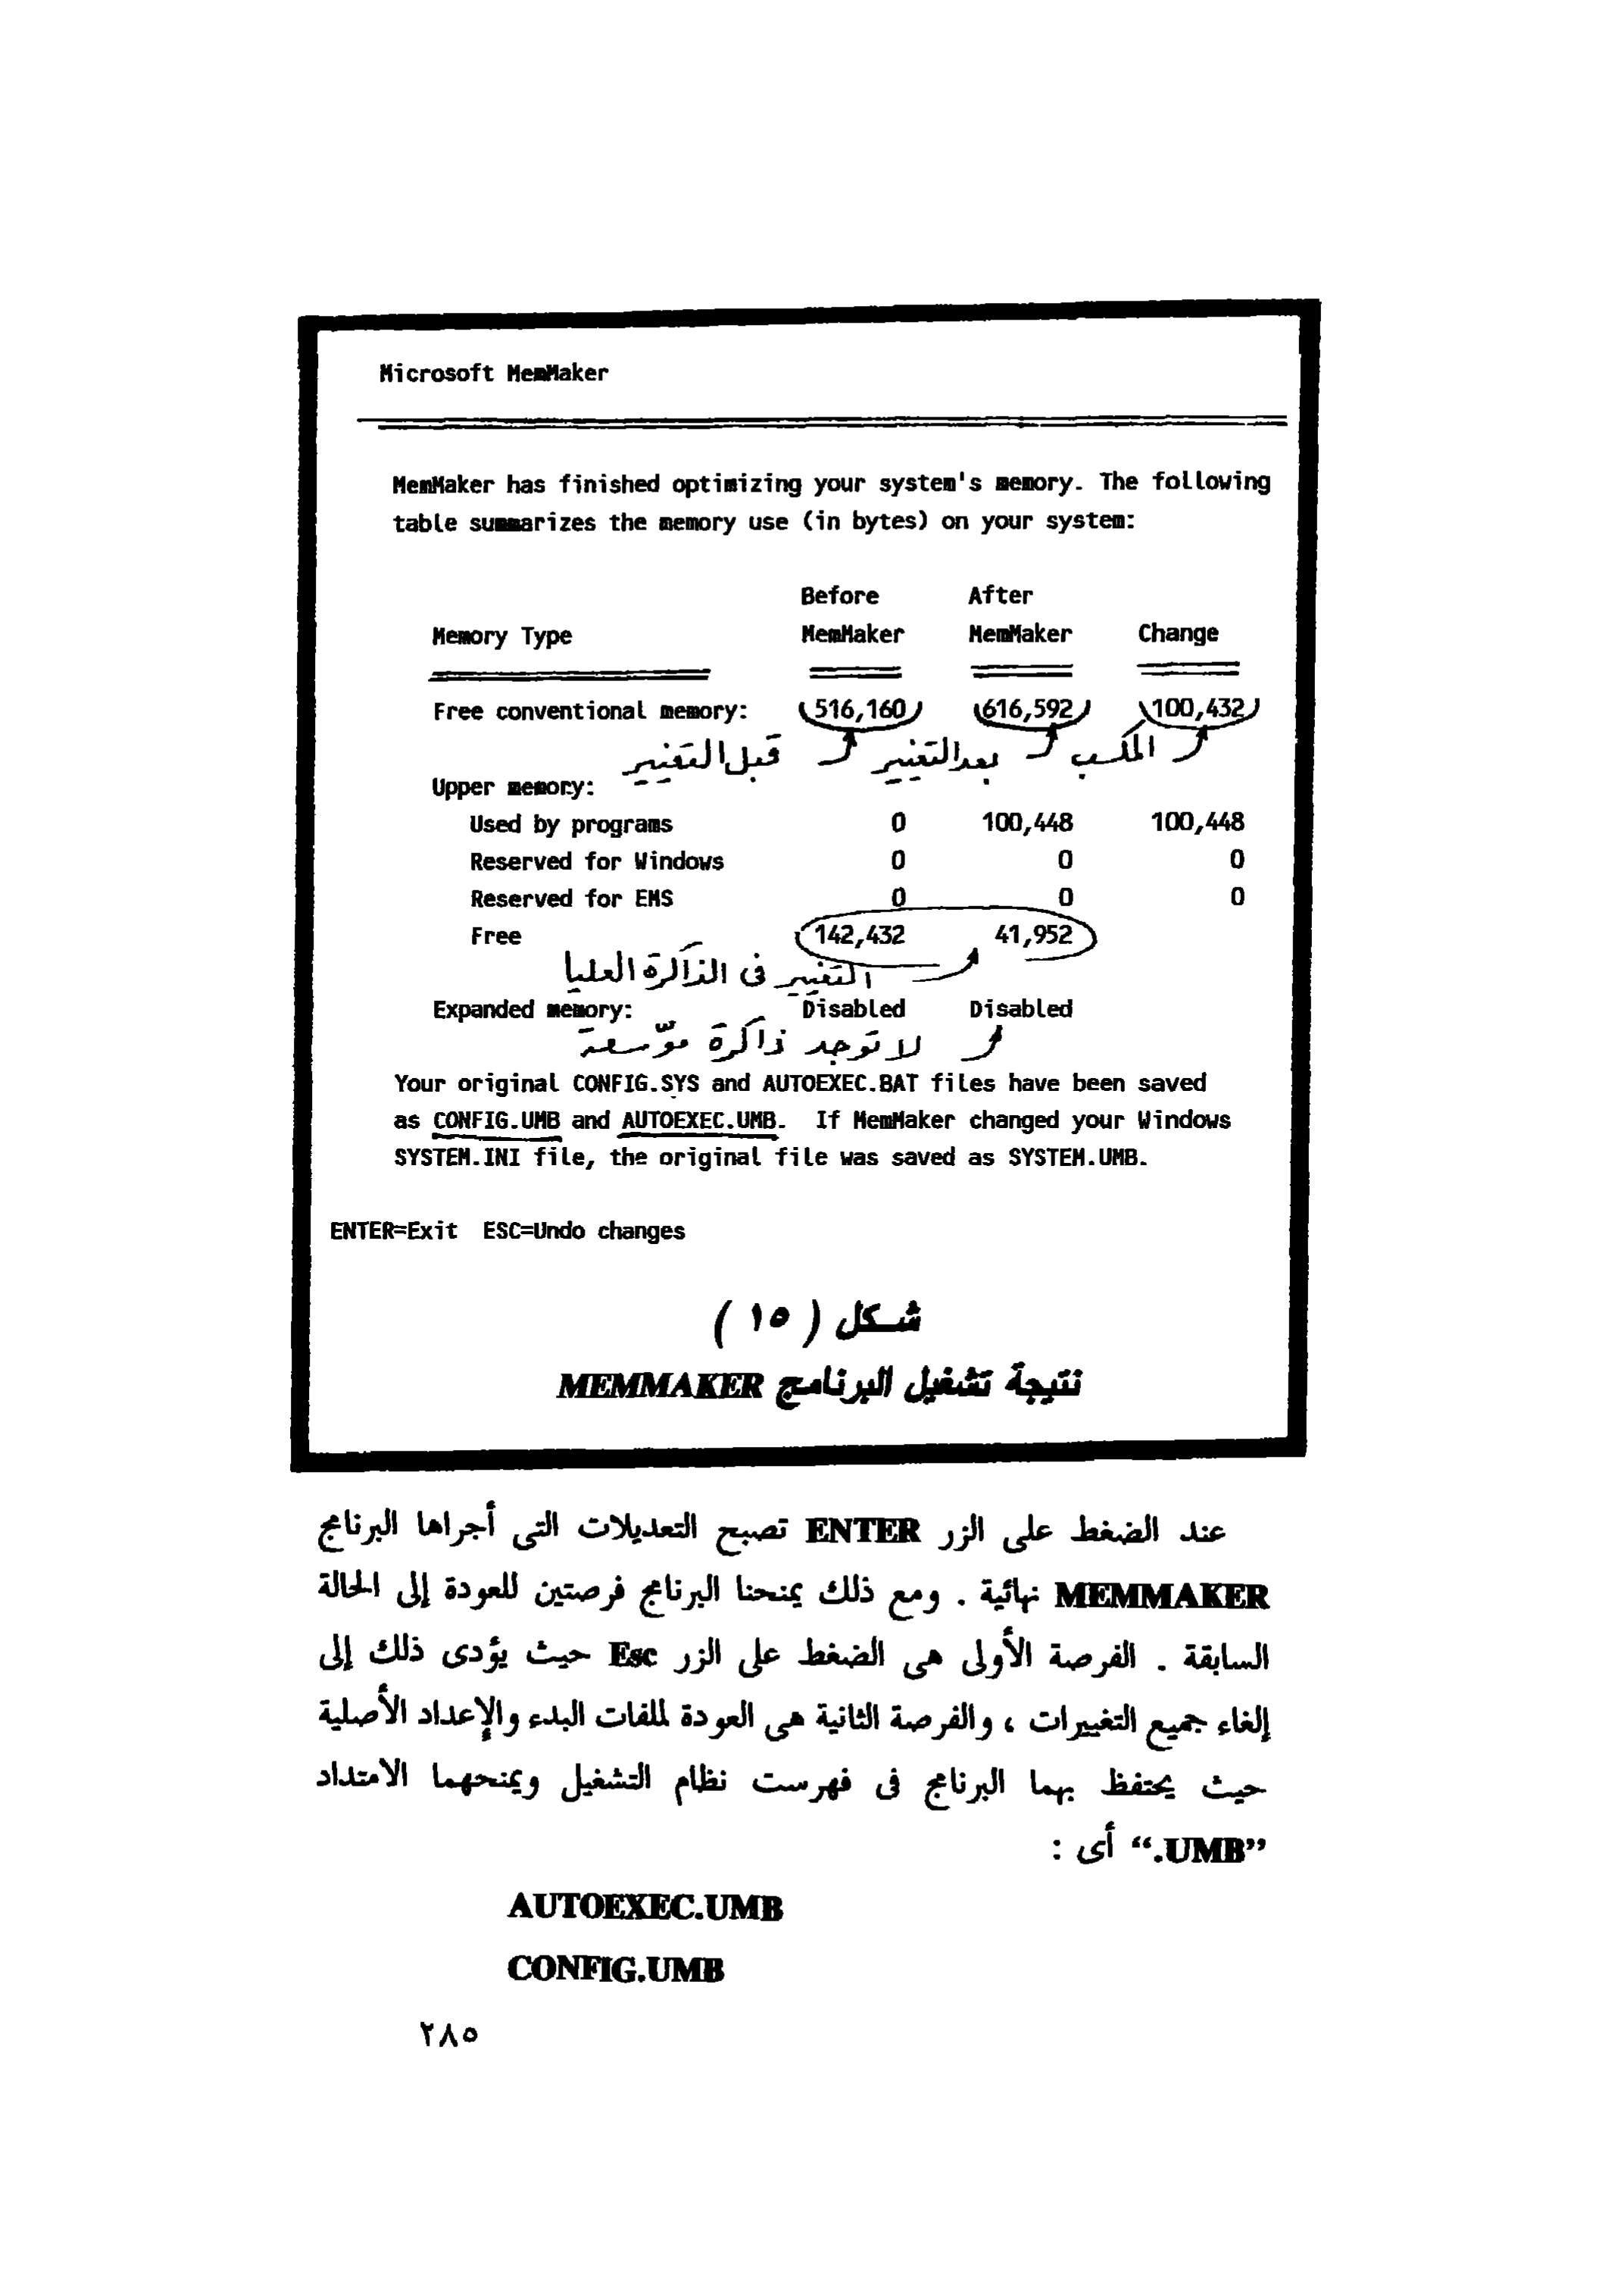 Microsoft MemMaker
MemMaker has finished optimizing your system's memory. The following
table summarizes the memory use (in bytes) on your system:
Before After
Memory Type MemMaker MemMaker Change
Free conventional memory: 516,160 616,592 100,432
قبل التغيير بعد التغيير المكسب
Upper memory:
Used by programs 0 100,448 100,448
Reserved for Windows 0 0 0
Reserved for EMS 0 0 0
Free 142,432 41,952
التغيير فى الذاكرة العليا
Expanded memory: Disabled Disabled
لا توجد ذاكرة موسعة
Your original CONFIG.SYS and AUTOEXEC.BAT files have been saved
as CONFIG.UMB and AUTOEXEC.UMB. If MemMaker changed your Windows
SYSTEM.INI file, the original file was saved as SYSTEM.UMB.
ENTER=Exit ESC=Undo changes
شكل ( ١٥ )
نتيجة تشغيل البرنامج MEMMAKER
عند الضغط على الزر ENTER تصبح التعديلات التى أجراها البرنامج
MEMMAKER نهائية . ومع ذلك يمنحنا البرنامج فرصتين للعودة إلى الحالة
السابقة . الفرصة الأولى هى الضغط على الزر Esc حيث يؤدى ذلك إلى
إلغاء جميع التغييرات ، والفرصة الثانية هى العودة لملفات البدء والإعداد الأصلية
حيث يحتفظ بهما البرنامج فى فهرست نظام التشغيل ويمنحهما الامتداد
“.UMB” أى :
AUTOEXEC.UMB
CONFIG.UMB
٢٨٥